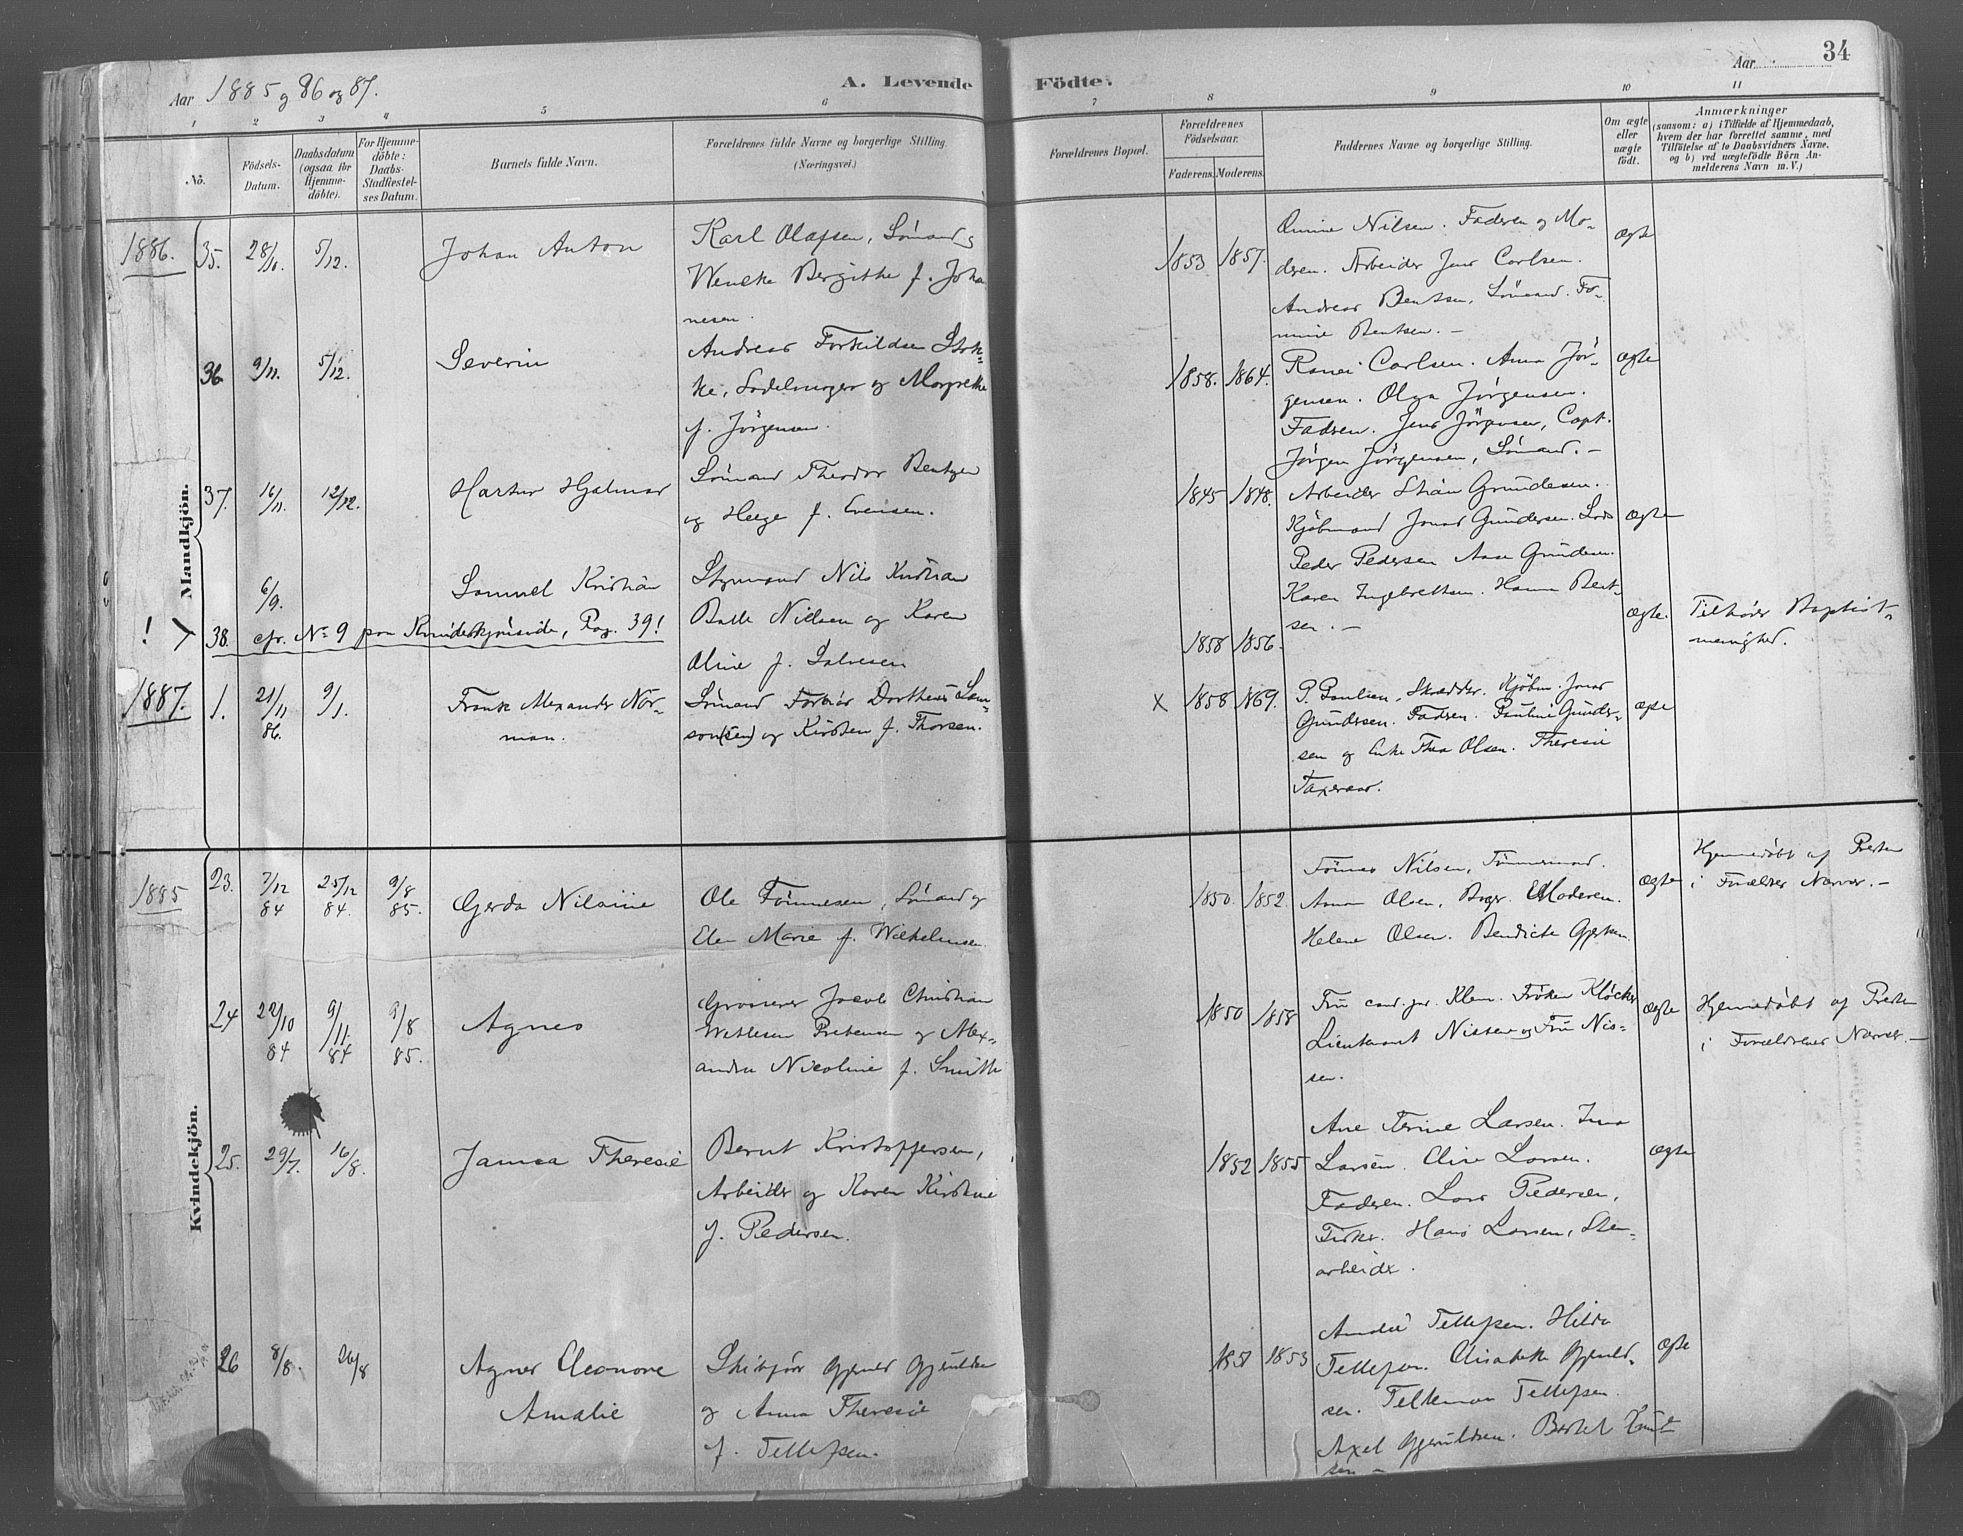 34
Aar 1885 og 86 og 87.
A. Levende Födte.
Aar
1 2 3 4 5 6 7 8 9 10 11
No.
Födsels-Datum.
Daabsdatum (ogsaa for Hjemme-döbte).
For Hjemme-döbte: Daabs-Stadfæstel-ses Datum.
Barnets fulde Navn.
Forældrenes fulde Navne og borgerlige Stilling. (Næringsvei.)
Forældrenes Bopæl.
Forældrenes Födselsaar.
Faderens. Moderens.
Faddernes Navne og borgerlige Stilling.
Om ægte eller uægte födt.
Anmærkninger
(saasom: a) i Tilfælde af Hjemmedaab, hvem der har forrettet samme, med Tilföielse af to Daabsvidners Navne, og b) ved uægtefödte Börn An-melderens Navn m. V.)
Mandkjön.
1886. 35. 28/10. 5/12. Johan Anton
Karl Olafsen, Sömand og
Wencke Bergithe f. Joha
nesen.
1853 1857.
Nilsen. Faderen og Mo-
deren. Arbeider Jens Carlsen.
Andreas Bentsen, Sömand.
Bentsen. –
ægte
36 9/11. 5/12. Severin
Andreas Torkildsen Stok-
ke, Sadelmager og Margrethe
f. Jörgensen.
1858. 1864.
Carlsen. Anna Jör-
gensen. Olga Jörgensen.
Fadren. Jens Jörgensen, Capt.
Jörgen Jörgensen, Sömand. –
ægte
37. 16/11. 12/12. Hjalmar
Sömand Theodor Bentzen
og Helge f. Evensen.
1845 1848.
Arbeider Stian Gundersen.
Kjöbmand Jonas Gundersen. Lods
Peder Pedersen Aase Gundersen.
Karen Ingebrettsen. Hanna Bent-
sen. –
ægte
! 38. 6/9. Samuel Kristian
cfr. No 9 paa Kvindekjönside, Pag. 39!
Styrmand Nils Kristian
Balle Nielsen og Karen
Oline f. Salvesen
1858 1856.
ægte.
Tilhörer Baptist-
menighed.
1887. 1. 21/11 86. 9/1. Frank Alexander Nor-
man.
Sömand Torbiör Dorthens Sam-
son(sen) og Kirsten f. Thorsen.
x 1858 1869.
P. Paulsen, Skrædder. Kjöbm. Jonas
Gundersen. Fadren. Pauline Gunder-
sen og Enke Thea Olsen. Theresie
Taxeraas.
ægte
Kvindekjön.
1885 23. 7/12 84 25/12 84. 9/8 85. Gerda Nilsine
Ole Tönnesen, Sömand og
Elen Marie f. Wilhelmsen.
1850. 1852.
Tönnes Nilsen, Tömmermand.
Anna Olsen, Moderen.
Helene Olsen. Bendicte Gjertsen.
ægte
Hjemmedöbt af Presten
i Forældres Nærvær. –
24 22/10 84 9/11 84 9/8 85. Agnes
Grosserer Jacob Christian
Wetlesen Prebensen og Alex-
andra Nicoline f. Smith
1850 1858
Fru cand. jur. Klem. Fröken Klöcker
Lieutenant Nissen og Fru Nis-
sen.
ægte
Hjemmedöbt af Presten
i Forældrenes Nærvær. –
25. 29/7. 16/8. Theresie
Bernt Kristoffersen,
Arbeider og Karen Kirstine
f. Pedersen.
1852 1855
Ane Terine Larsen. Ina
Larsen. Elise Larsen.
Faderen. Lars Pedersen,
Fisker. Hans Larsen, Sten-
arbeider.
ægte
26 8/8. 26/8 Agnes Eleonore
Amalie
Skibsför Gjeruld Gjeruldsen
og Anna Theresie
f. Tellefsen.
1851 1853
Amalie Tellefsen. Hilda
Tellefsen. Elisabeth Gjeruld-
sen. Tellefsen.
Axel Gjeruldsen. Bertel Knud-
sen –
ægte